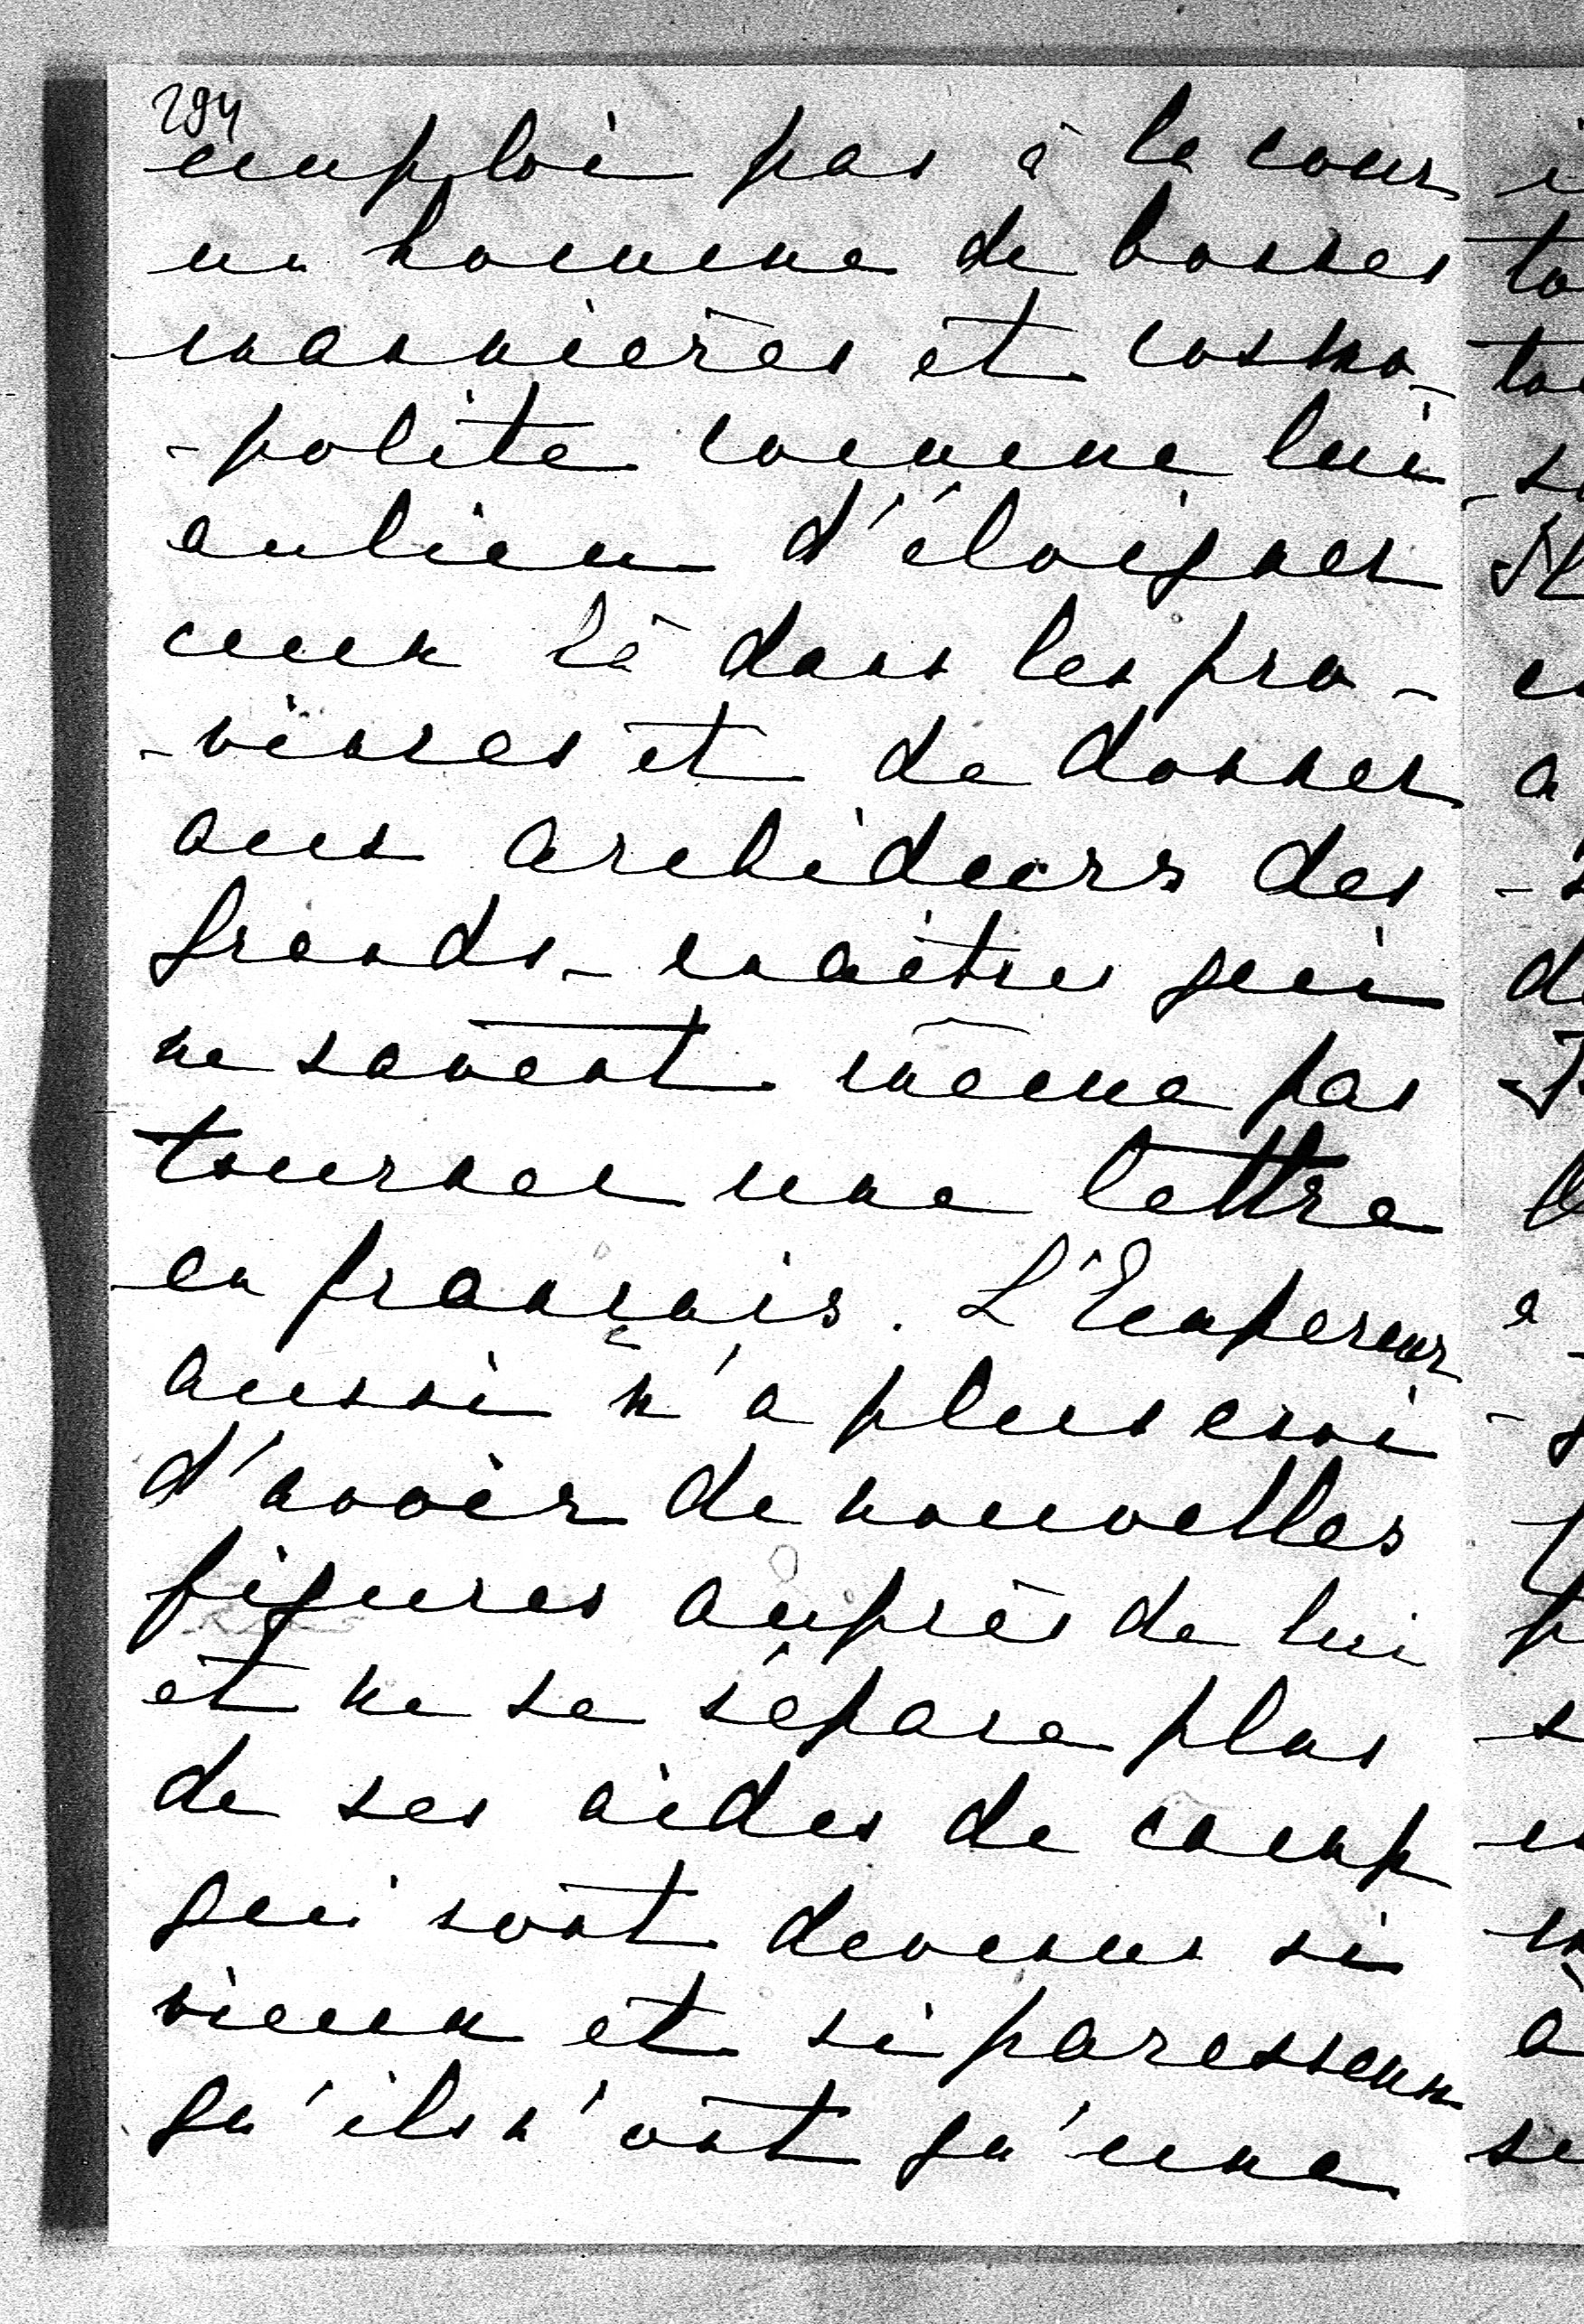 294
emploi pas à la cour
un homme de bonnes
mannières et cosmo-
-polite comme lui
aulieu d'éloigner
ceux là dans les pro-
-vinces et de donner
aux archiducs des
grands-maîtres qui
ne savent même pas
tourner une lettre
en français. L'Empereur
aussi n'a plus envi
d'avoir de nouvelles
figures auprès de lui
et ne se sépare plus
de ses aides de camp
qui sont devenus si
vieux et si paresseux
qu'ils n'ont qu'une